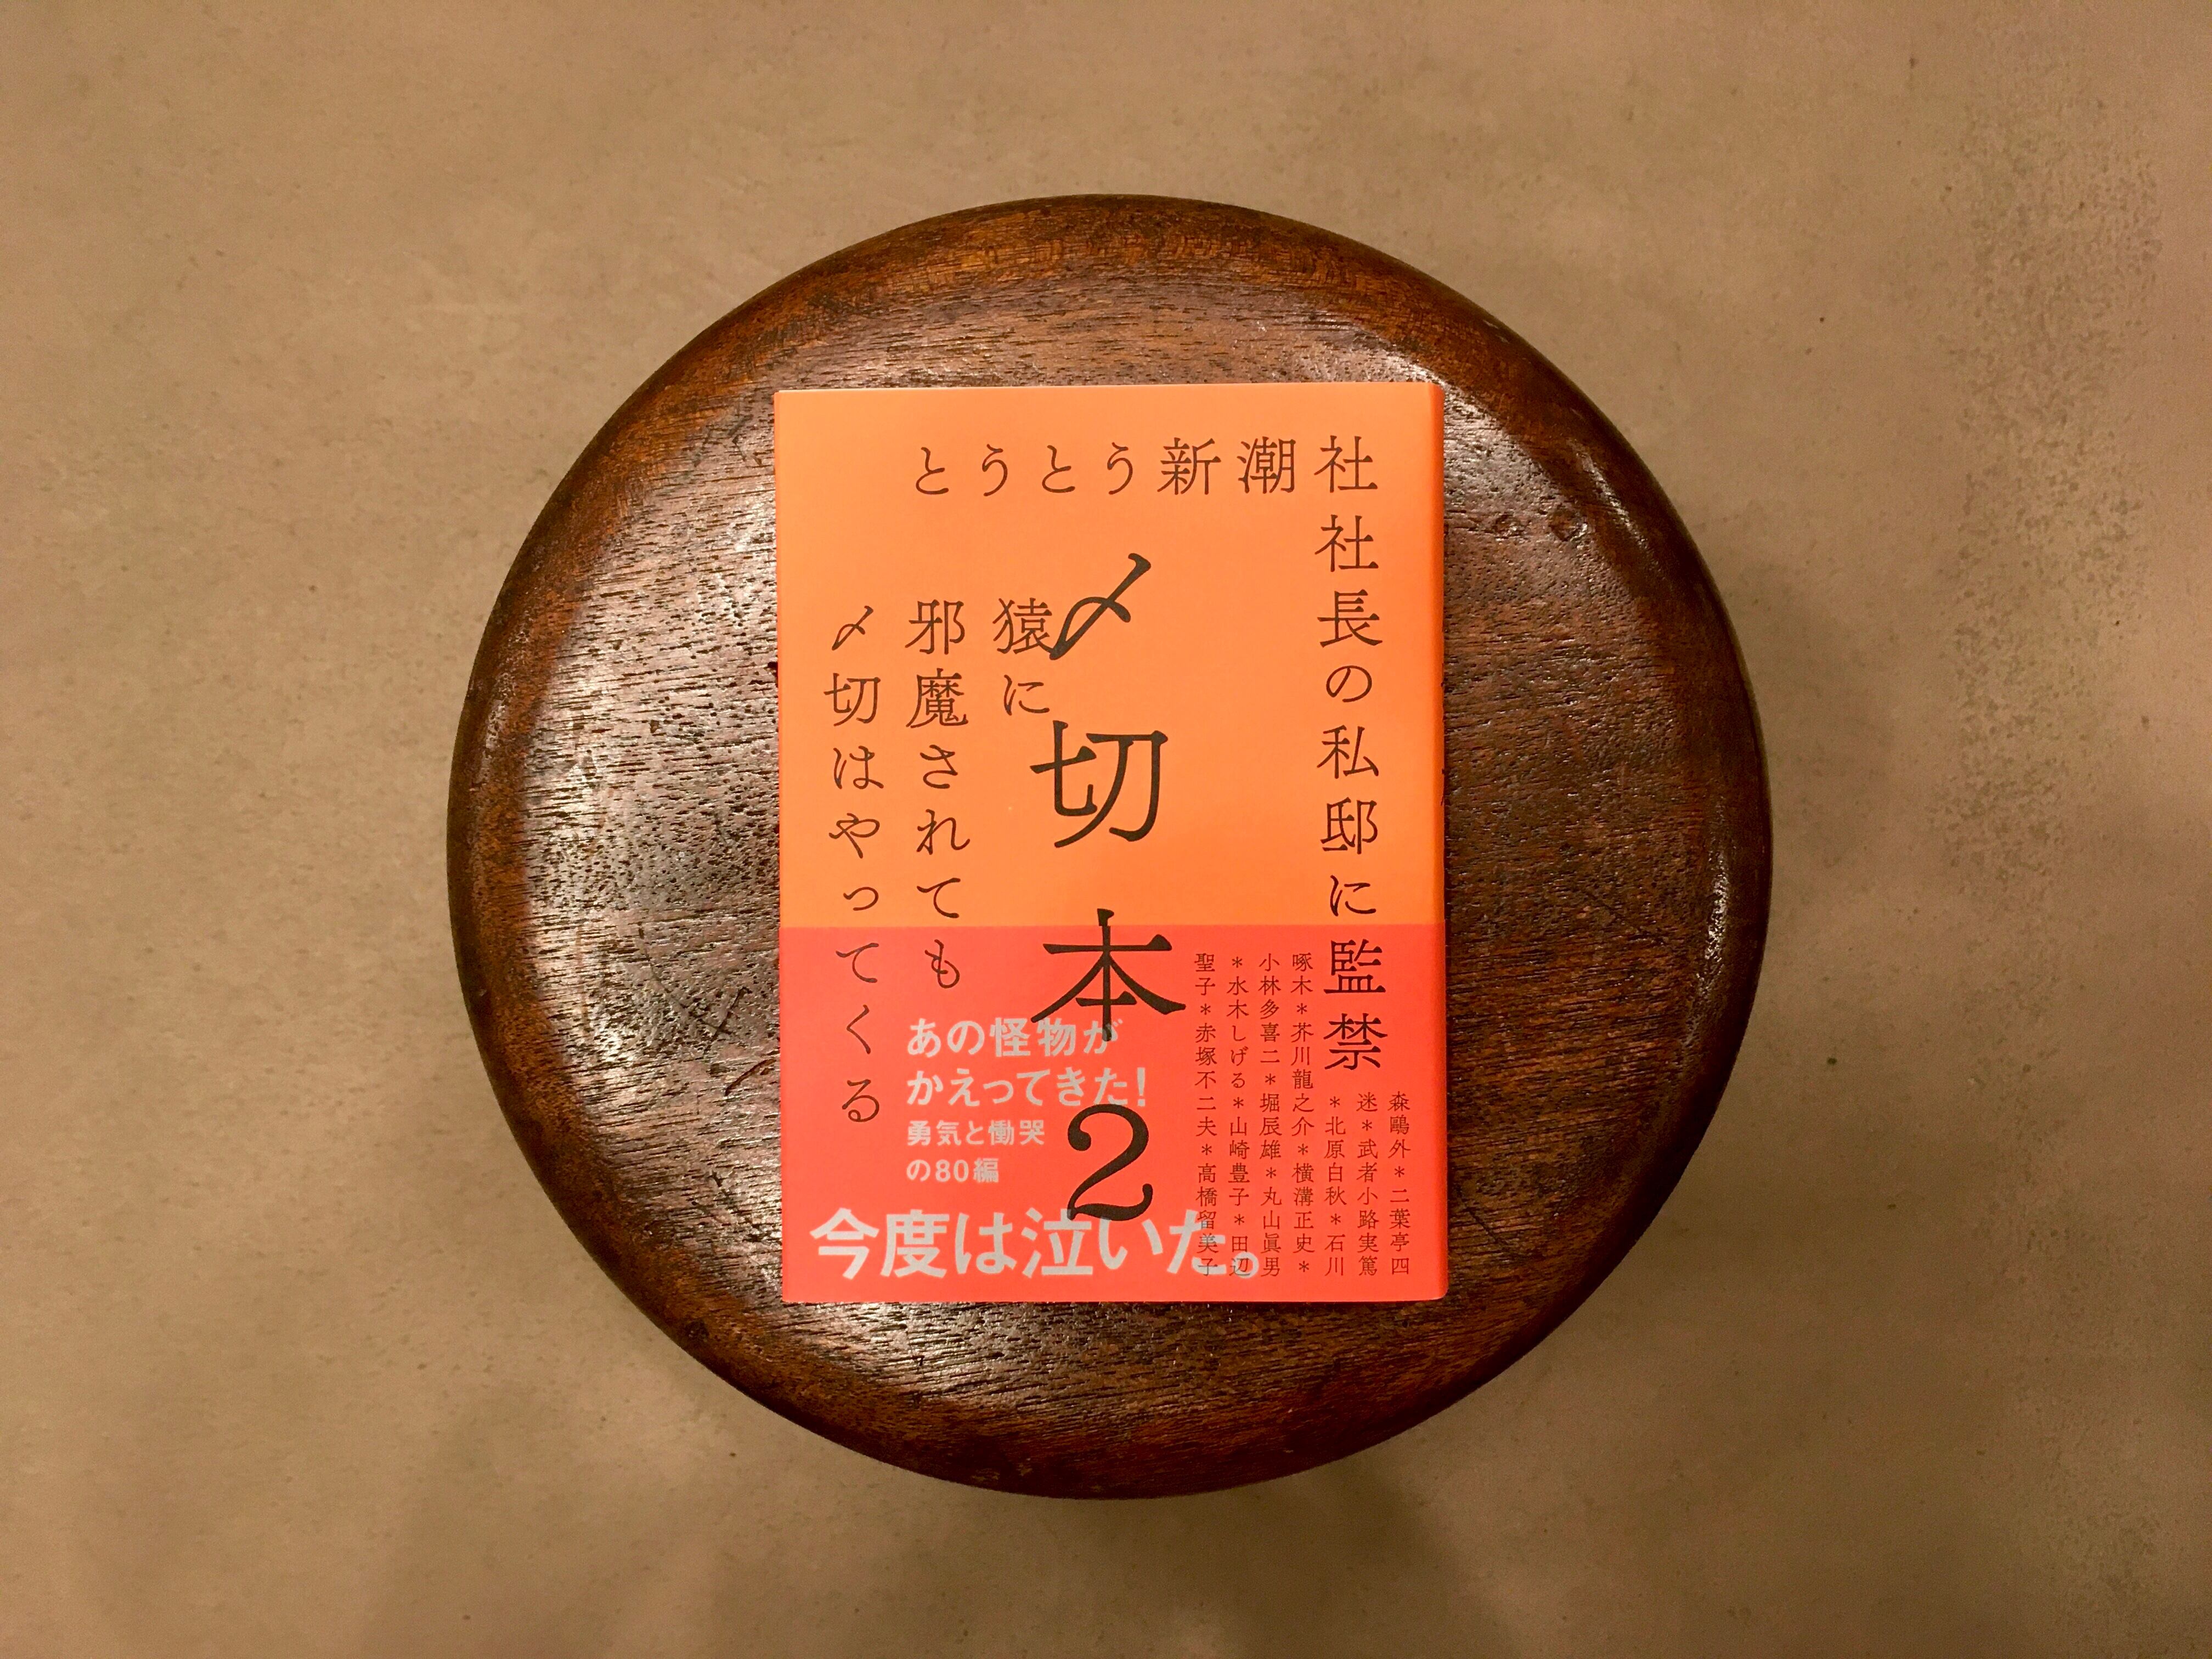 とうとう新潮社社長の私邸に監禁
〆切本2
猿に
邪魔されても
〆切はやってくる
森鷗外*二葉亭四
迷*武者小路実篤
*北原白秋*石川
啄木*芥川龍之介*横溝正史*
小林多喜二*堀辰雄*丸山眞男
*水木しげる*山崎豊子*田辺
聖子*赤塚不二夫*高橋留美子
あの怪物が
かえってきた!
勇気と慟哭
の80編
今度は泣いた。